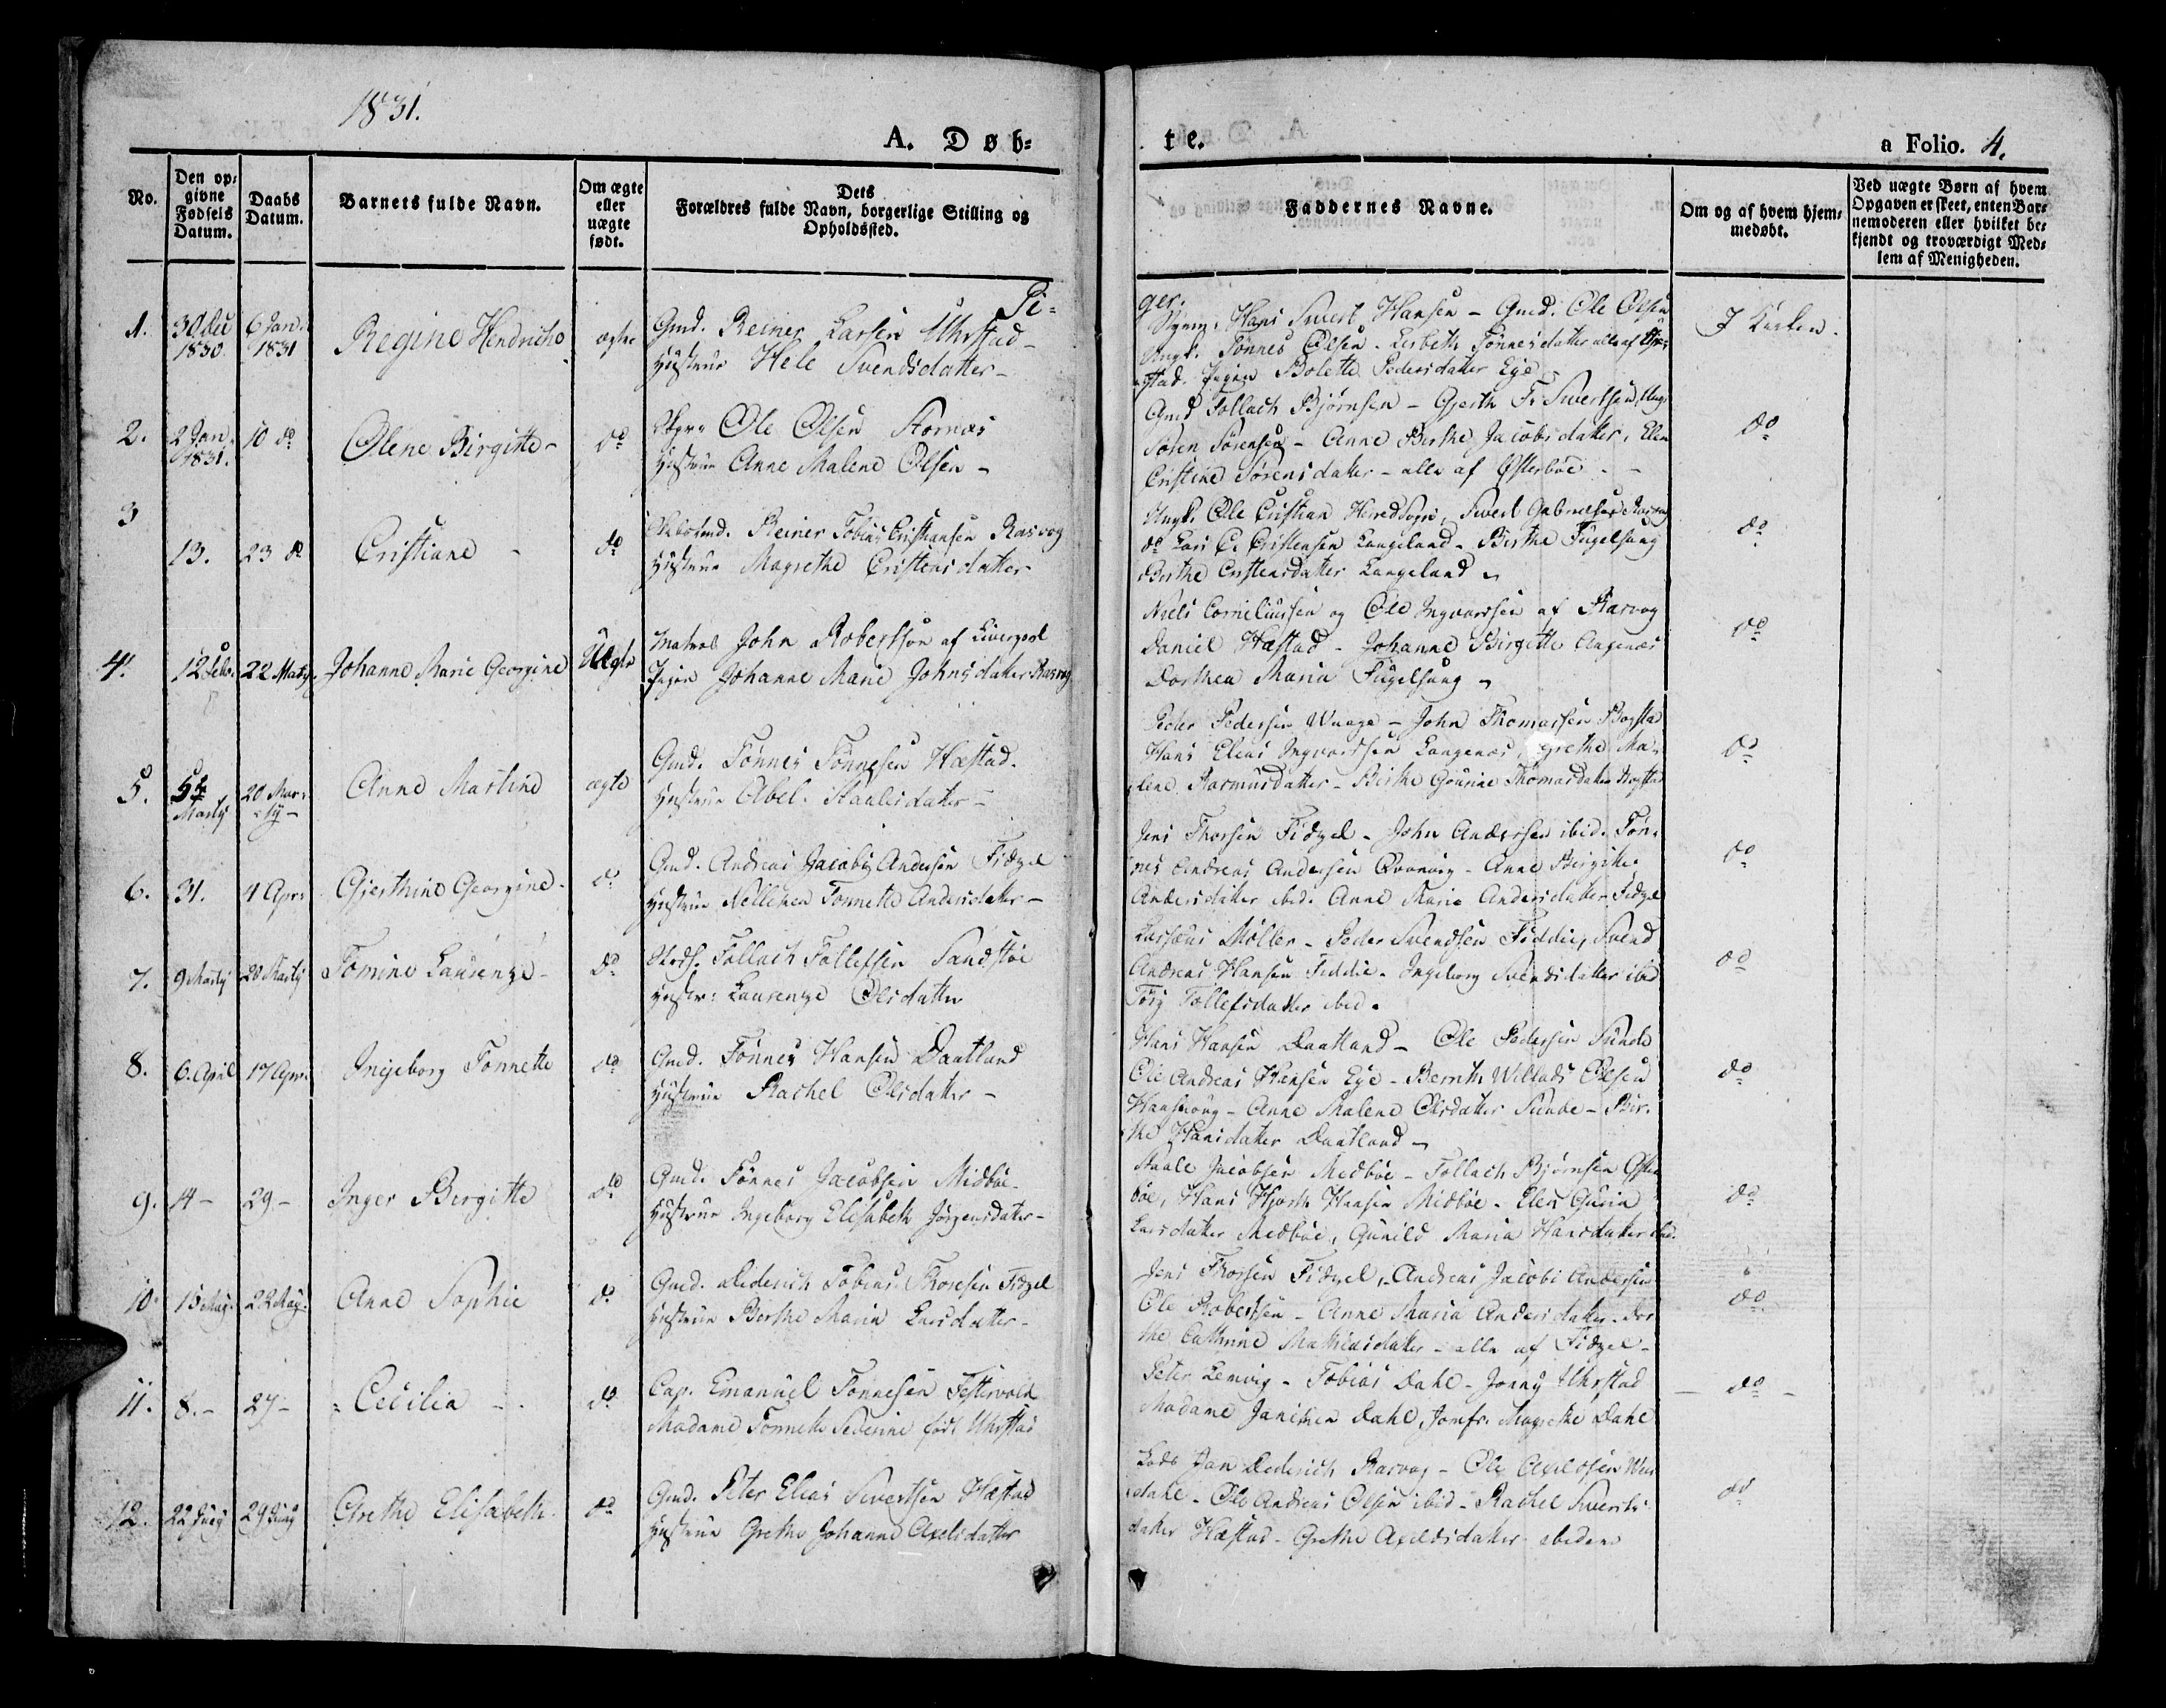 1831.
A. Døb=
te.
a Folio. 4.
No.
Den op=
givne
Fødsels
Datum.
Daabs
Datum.
Barnets fulde Navn.
Om ægte
eller
uægte
født.
Dets
Forældres fulde Navn, borgerlige Stilling og
Opholdssted.
Faddernes Navne.
Om og af hvem hjem=
medøbt.
Ved uægte Børn af hvem
Opgaven er skeet, enten Bar=
nemoderen eller hvilket be=
kjendt og troværdigt Med=
lem af Menigheden.
Pi=
ger.
1.
30 Dec
1830.
6 Jan.
1831
Regine Hendricho
ægte
Gmd. Reiner Larsen Uhrstad -
Hustrue Hele Svendsdatter -
Hans Sivert Hansen - Gmd. Ole Olsen
Ungk. Tønnes Olsen - Lisbeth Tønnesdatter alle af Uhr=
stad. Pigen Bolette Pedersdatter Ege
I Kirken.
2.
2 Jan.
1831.
10 do
Olene Birgitte -
do
Ole Olsen Stornæs
Hustrue Anne Malene Olsen -
Gmd Tollach Bjørnsen - Gjerth F. Sivertsen, Ung.
Søren Sørensen - Anne Birthe Jacobsdatter, Elen
Cristine Sørensdatter - alle af Østerbøe -
do
3
13.
23 do
Cristiane -
do
Reiner Tobias Cristiansen Rasvog
Hustrue Magrethe Cristensdatter
Ungk. Ole Cristian Sivert Gabrielsen Rasvog
do Lars C. Cristensen Langeland - Birthe Fugelsang
Birthe Cristensdatter Langeland
do
4.
12 Febr.
22 Martz
Johanne Marie Georgine
Uægte
Matros John Robertson af Liverpool
Pigen Johanne Marie Johnsdatter Rasvog
Niels Corneliussen og Ole Ingvardsen af Rasvog
Daniel Hæstad - Johanne Birgitte Angenæs
Dorthea Maria Fugelsang
do
5.
5te
Martz
20 Mar=
tz -
Anne Martine
ægte
Gmd. Tønnes Tønnesen Hæstad.
Hustrue Abel Staalesdatter -
Peder Pedersen Waage - John Thomassen Bogstad
Hans Elias Ingvardsen Langenæs, Grethe Ma=
lene Rasmusdatter - Birthe Gourine Thomasdatter Bogstad
do
6.
31.
4 Apr.
Gjerthine Georgine -
do
Gmd. Andreas Jacobi Andersen Fidzel
Hustrue Nellken Tonnette Andersdatter -
Jens Thorsen Fidzel - John Andersen ibid. Tøn=
nes Andreas Andersen - Anne Birgitte
Andersdatter ibid. Anne Marie Andersdatter Fidzel
do
7.
9 Martz
20 Martz
Tomine Laurenze -
do
Tollach Tollefsen Sandstøe
Hustr: Laurenze Olsdatter
Møller - Peder Svendsen Fiddie, Svend
Andreas Hansen Fiddie - Ingeborg Svendsdatter ibid
Tollefsdatter ibid.
do
8.
6. April
17 Apr.
Ingeborg Tonnette
do
Gmd. Tønnes Hansen Daatland
Hustrue Rachel Olsdatter -
Hans Hansen Daatland - Ole Pedersen Sunde
Ole Andreas Hansen Ege - Bernth Willads Olsen
- Anne Malene Olsdatter Sunde - Bir=
the Hansdatter Daatland
do
9.
14 -
29 -
Inger Birgitte
do
Gmd. Tønnes Jacobsen Midbøe -
Hustrue Ingeborg Elisabeth Jørgensdatter -
Staale Jacobsen Medbøe - Tollach Bjørnsen Øster
bøe, Hans Hjorth Hansen Midbøe - Elen Guria
Larsdatter Medbøe, Gunild Maria Hansdatter ibid.
do
10.
15 May.
22 May.
Anne Sophie
do
Gmd. Diderich Tobias Thorsen Fidzel
Hustrue Berthe Maria Larsdatter -
Jens Thorsen Fidzel, Andreas Jacobi Andersen
Ole Robertsen - Anne Maria Andersdatter - Dor
the Cathrine Mathiasdatter - alle af Fidzel -
do
11.
8. -
27 -
Cecilia -
do
Cap. Emanuel Tonnesen Festervold
Madame Tonnette Severine født Uhrstad
Peter Lemvig - Tobias Dahl - Jonny Uhrstad
Madame Janiken Dahl, Jomfr. Magrethe Dahl
- do -
12.
22 Juny
29 Juny
Grethe Elisabeth.
do
Gmd. Peter Elias Sivertsen Hæstad
Hustrue Grethe Johanne Axelsdatter
Lods Jan Diderich Rasvog - Ole Axelsen Wen
dahl - Ole Andreas Olsen ibid - Rachel Siverts=
datter Hæstad - Grethe Axelsdatter ibidem
do